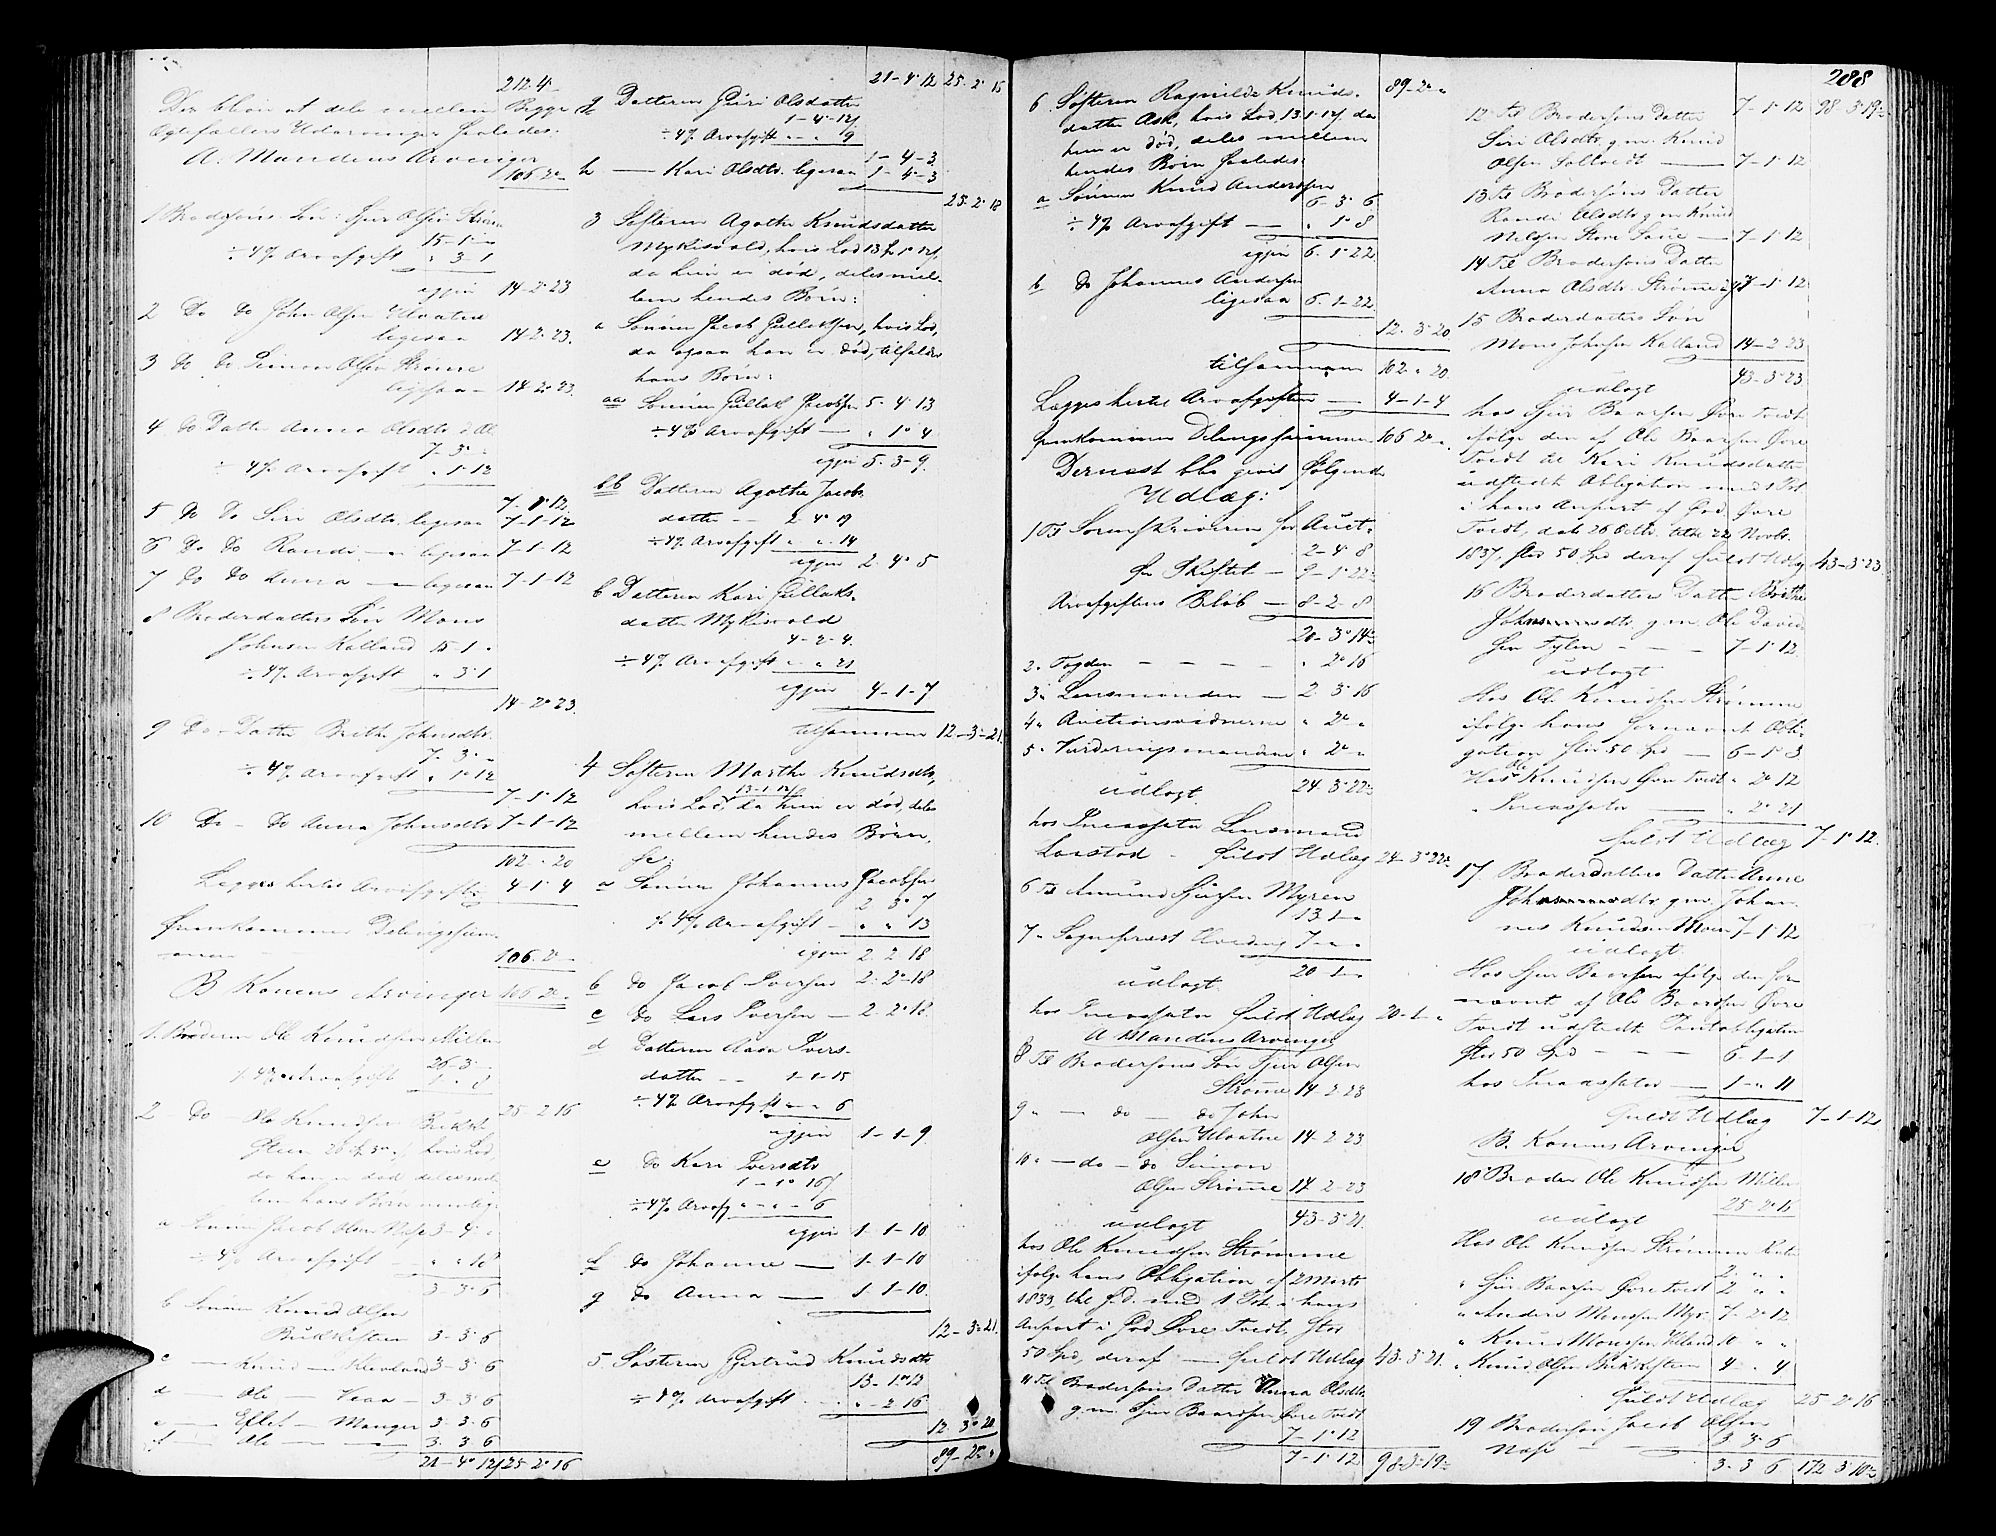 212. 4 -
Der bliver at dele mellem Begge
Ægtefællers Udarvinger saaledes:
A. Mandens Arvinger
106. 2 -
1 Brodersøns Søn: Siur Olsen Strøm
15 - 1 - "
÷ 4% Arveafgift " 3 - 1
igjen 14 - 2 - 23
2 Do do John Olsen
ligesaa 14 - 2 - 23.
3 do do Simon Olsen Strømme
ligesaa - 14 - 2 - 23.
4 do Datter Anna Olsdtr
7 - 3 - "
÷ 4% Arveafgift " 1 - 12
7 - 1 - 12
5 do do Siri Olsdtr ligesaa 7 - 1 - 12
6 do do Randi — ligesaa 7 - 1 - 12
7 do do Anna — ligesaa 7 - 1 - 12
8 Broderdatters Søn Mons
Johnsen Kalland 15 - 1 "
÷ 4% Arveafgift " 3 - 1
14 - 2 - 23.
9 Do - Datter Brithe Johnsdtr.
7 - 3 - "
÷ 4% Arveafgift " 1 - 12
7 - 1 - 12
10 Do - do Anna Johnsdtr 7 - 1 - 12
102 - " 20
Lægges hertil Arveafgiften 4 - 1 - 4
fremkommer Delingssum-
men 106. 2 -
B Konens Arvinger 106 - 2 -
1. Broderen Ole Knudsen
26 - 3 -
÷ 4% Arveafgift
25 - 2 - 16
2 - Do - Ole Knudsen
hvis Lod,
da han er død deles mel-
lem hans Børn nemlig
a Sønnen Jacob Olsen Nose 3 - 4 "
÷ 4% Arveafgift - " " 18
3 - 3 - 6
b Sønnen Knud Olsen
3 - 3 - 6
c — Knud — 3 - 3 - 6
d — Ole — 3 - 3 - 6
e — — Manger 3 - 3 - 6
f — Ole — 3 - 3 - 6
21 - 4 - 12 25 - 2 - 16
21 - 4 - 12 25 - 2 - 16
g Datteren Guri Olsdatter
1 - 4 - 12
÷ 4% Arveafgift " - " 9
1 - 4 - 3
h — Kari Olsdtr. ligesaa 1 - 4 - 3
25 - 2 - 18
3 Søsteren Agathe Knudsdatter
hvis Lod
da hun er død, deles mel-
lem hendes Børn:
a Sønnen Jacob Gullaksen, hvis Lod,
da ogsaa han er død, tilfalder
hans Børn:
aa Sønnen Gullak Jacobsen 5 - 4 - 13
÷ 4% Arveafgift — " 1 - 4
igjen 5 - 3 - 9.
bb Datteren Agathe Jacobs-
datter - - 2 - 4 - 19
÷ 4% Arveafgift " " 14
igjen 2 - 4 - 5
b Datteren Kari Gullaks-
datter
4 - 2 - 4.
÷ 4% Arveafgift " " 21
igjen 4 - 1 - 7
tilsammen 12 - 3 - 21.
4 Søsteren Marthe Knudsdtr,
hvis Lod, da hun er død, deles
mellem hendes Børn,
a Sønnen Johannes Jacobsen
2 3 - 7
÷ 4% Arveafgift - " " 13
igjen 2 - 2 - 18
b do Jacob Iversen 2 - 2 - 18
c do Lars Iversen — 2 - 2 - 18.
d Datteren Ivers-
datter - - 1 - 1 - 15
÷ 4% Arveafgift " " 6
igjen 1 - 1 - 9.
e do Kari Iversdtr
1 - 1 - 16
÷ 4% Arveafg " - " - 6
igjen 1 - 1 - 10
f do Johanne — 1 - 1 - 10
g do Anna — 1 - 1 - 10.
12 - 3 - 21.
5. Søsteren Gjertrud Knudsdtr
13 - 1 - 12
÷ 4% Arveafgift - " - 2 - 16
12 - 3 - 20
89 - 2 - "
288
89 - 2 - "
6 Søsteren Ragnilde Knuds-
datter Ask, hvis Lod, 13 - 1 - 12 da
hun er død, deles mellem
hendes Børn saaledes:
a Sønnen Knud Andersen
6 - 3 - 6
÷ 4% Arveafgift — " 1 - 8
igjen 6 - 1 - 22
b do Johannes Andersen
ligesaa 6 - 1 - 22
12 - 3 - 20
tilsammen 102 - " 20.
Lægges hertil Arveafgiften — 4 - 1 - 4
fremkommer Delingssummen 106 2 - "
Dernæst blev gjort følgende
Udlæg:
1 Til Sorenskriveren for Auct.
2 - 4 - 8
for Skiftet - 9 - 1 - 22
Arveafgiftens Beløb — 8 - 2 - 8
20 - 3 - 14
2. Fogden - - - - " 2 - 16
3. Lensmanden — 2 - 3 - 16
4. Auctionsvidnerne " 2 - "
5. Vurderingsmændene " 2 - "
24 - 3 - 22
udlagt
hos Incassator Lensmand
- fuldt Udlæg 24 - 3 - 22
6 Til Amund Siursen Myren
13 - 1 - "
7 " Sogneprest 7 - " "
20 - 1 - "
udlagt
hos Incassator fuldt Udlæg 20 - 1 - "
A Mandens Arvinger
8 Til Brodersøns Søn Siur Olsen
Strømme 14 - 2 - 23
9 " — do — do John
Olsen 14 - 2 - 23
10 " — do — do Simon
Olsen Strømme 14 - 2 - 23
43 - 3 - 21.
udlagt
hos Ole Knudsen Strømme
ifølge hans Obligation af 2 Marts
1833, med 1 Pr. i hans
Anpart i Gd. Øvre Tvedt stor
50 Spd, deraf — fuldt Udlæg 43 - 3 - 21.
11 Til Brodersøns Datter Anna Olsdtr
g. m. Siur Baardsen Øvre Tvedt
7 - 1 - 12
7 - 1 - 12 98 - 3 - 19
7 - 1 - 12 98 - 3 - 19
12 Til Brodersøns Datter
Siri Olsdtr g. m. Knud
Olsen — 7 - 1 - 12
13 Til Brodersøns Datter
Randi Olsdtr g. m. Knud
Nelsen Store — 7 - 1 - 12
14 Til Brodersøns Datter
Anna Olsdtr. Strømme 7 - 1 - 12
15 Broderdatters Søn
Mons Johnsen Kalland 14 - 2 - 23
43 - 3 - 23
udlagt
hos Siur Baardsen Øvre Tvedt
ifølge den af Ole Baardsen Øvre
Tvedt til Kari Knudsdatter
udstedte Obligation med 1 Pr
i hans Anpart af Gd. Øvre
Tvedt, dat. 26 Octb. 22 Novbr.
1837, stor 50 Spd deraf fuldt Udlæg 43 - 3 - 23
16 Broderdatters Datter Brithe
g. m. Ole David-
sen - - 7 - 1 - 12
udlagt
Hos Ole Knudsen Strømme
ifølge hans fornævnte Obli-
gation stor 50 Spd — 6 - 1 - 3
Hos Ole Knudsen Øvre Tvedt " 2 - 12
" Incassator — " 2 - 21
fuldt Udlæg 7 - 1 - 12.
17 Broderdatters Datter Anne
g. m. Johan-
nes Knudsen Moen 7 - 1 - 12
udlagt
Hos Siur Baardsen ifølge den for-
nævnte af Ole Baardsen Øvre
Tvedt udstedte Pantobligation
stor 50 Spd - - - 6 - 1 - 1
hos Incassator — 1 - " 11
fuldt Udlæg 7 - 1 - 12
B. Konens Arvinger
18 Broder Ole Knudsen
25 - 2 - 16
udlagt
Hos Ole Knudsen Strømmen
2 " "
" Siur Baardsen Øvre Tvedt 2 " "
" Anders Monsen Myr. 7 - 2 - 12
" Knud Monsen 10 " "
" Knud Olsen 4 " 4
fuldt Udlæg 25 - 2 - 16
19 Brodersøn Jacob Olsen
3 3 6
Nose - -
3 - 3 6 172 3 - 10